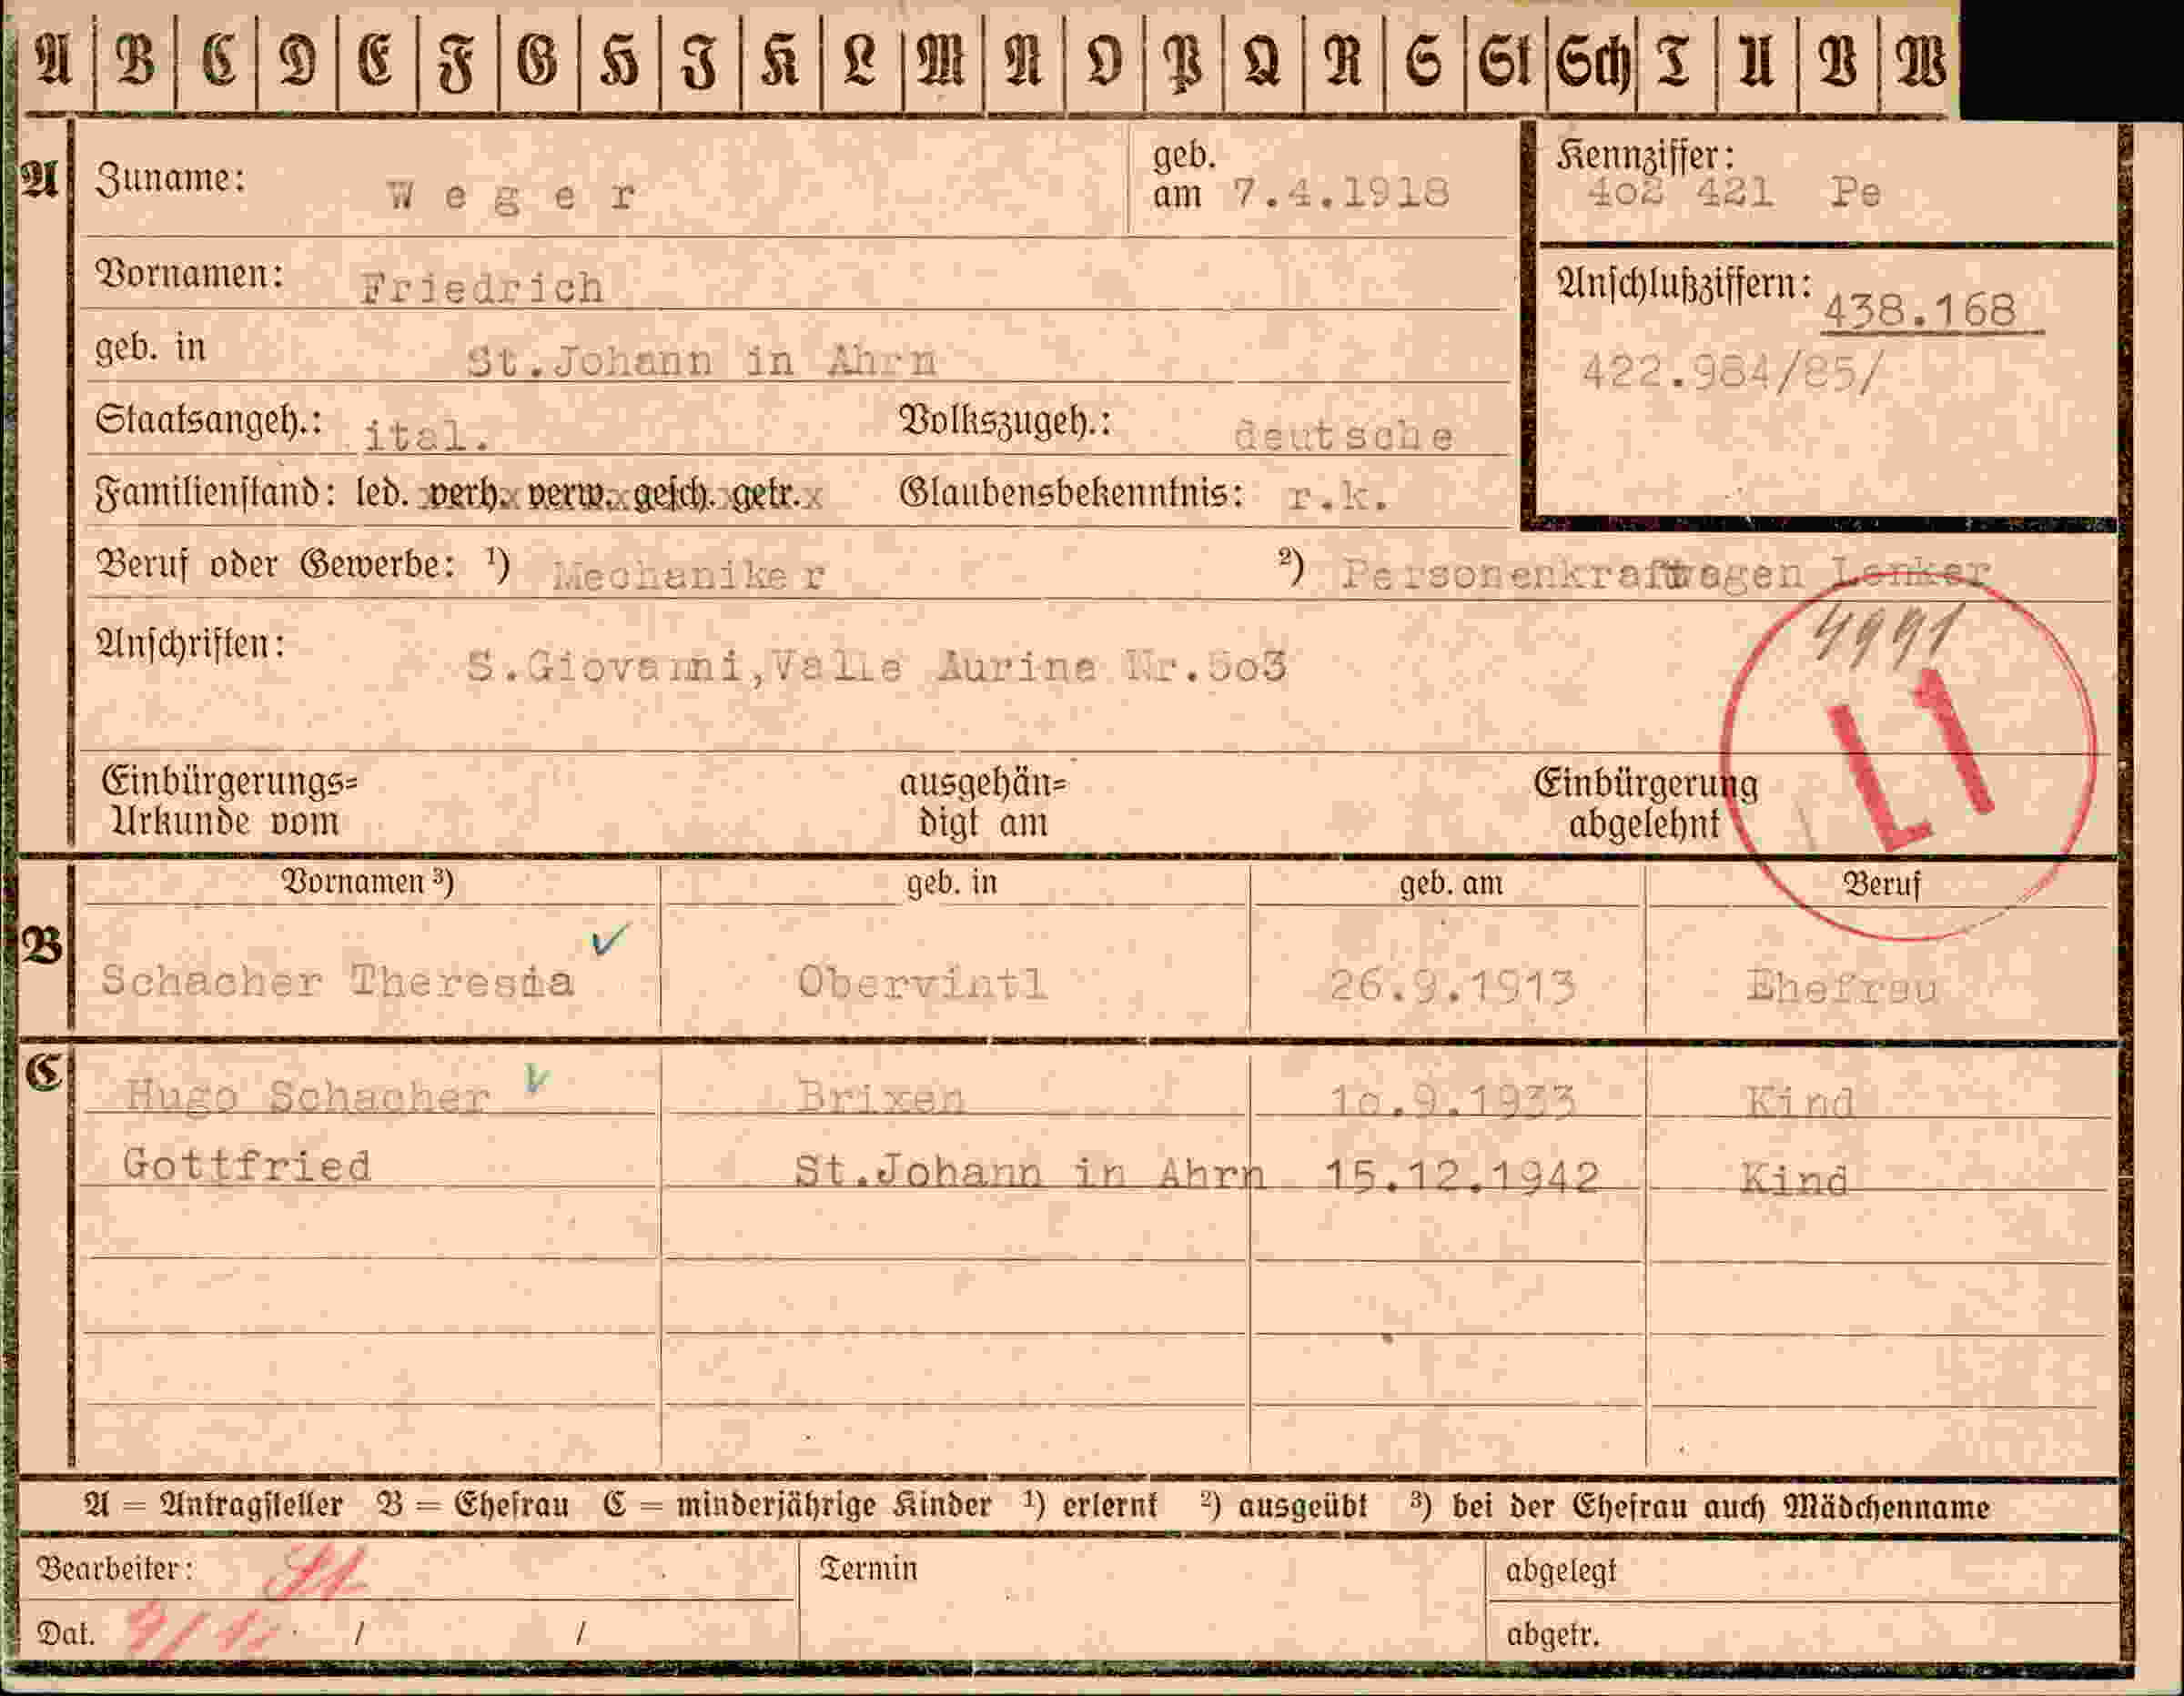 A B C D E F G H J K L M N O P Q R S St Sch T U V W
A Zuname: Weger geb. am 7.4.1918 Kennziffer: 4o2 421 Pe
Vornamen: Friedrich Anschlußziffern: 438.168
geb. in St.Johann in Ahrn 422.984/85/
Staatsangeh.: ital. Volkszugeh.: deutsche
Familienstand: led. verh. verw. gesch. getr. Glaubensbekenntnis: r.k.
Beruf oder Gewerbe: ¹) Mechaniker ²) Personenkraftwagen Lenker
4991
Anschriften: S.Giovanni,Valle Aurina Nr.5o3
L1
Einbürgerungs= ausgehän= Einbürgerung
Urkunde vom digt am abgelehnt
Vornamen ³) geb. in geb. am Beruf
B Schacher Theresia Obervintl 26.9.1913 Ehefrau
C Hugo Schacher Brixen 1o.9.1933 Kind
Gottfried St.Johann in Ahrn 15.12.1942 Kind
A = Antragsteller B = Ehefrau C = minderjährige Kinder ¹) erlernt ²) ausgeübt ³) bei der Ehefrau auch Mädchenname
Bearbeiter: Termin abgelegt
Dat. / / abgetr.